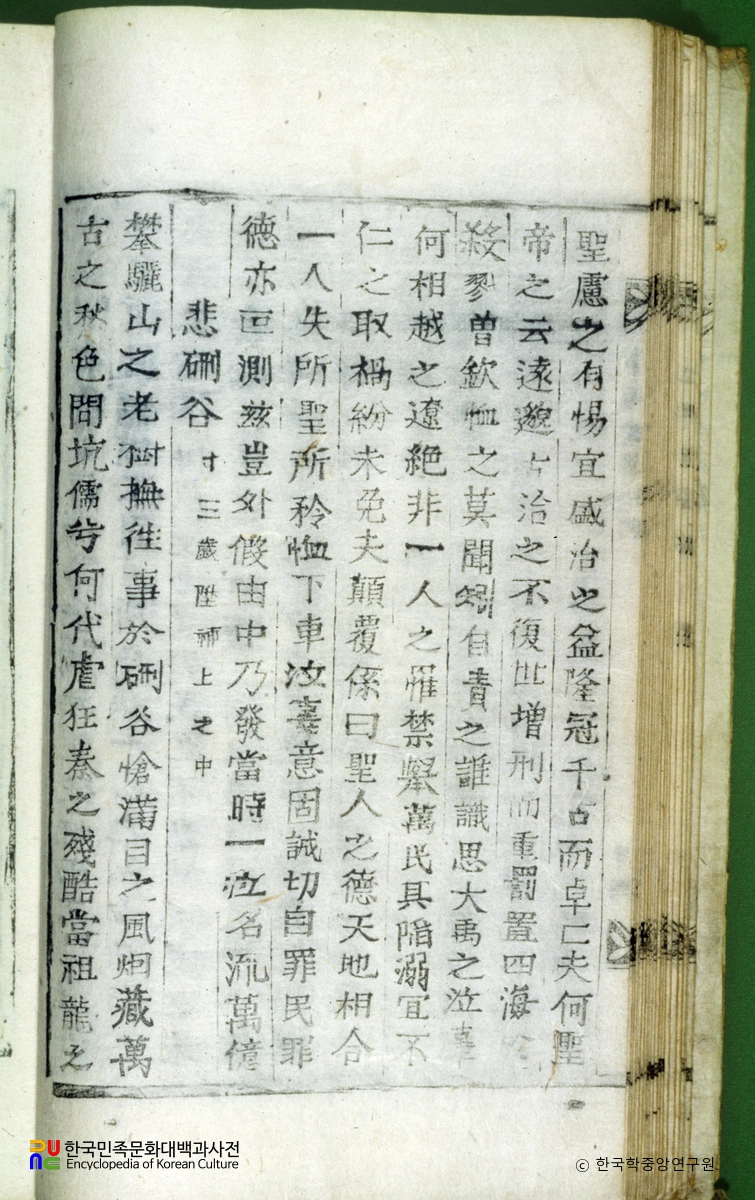 聖慮之有惕宜盛治之益隆冠千古而卓亡夫何聖
帝之云遠邈古治之不復世增刑而重罰置四海
殺戮曾欽恤之莫聞矧自責之誰識思大禹之泣辜
何相越之遼絶非一人之罹禁擧萬民具陷溺宜不
仁之取禍紛未免夫顚覆係曰聖人之德天地相合
一人失所聖所矜恤下車泣辜意固誠切自罪民罪
德亦叵測玆豈外假由中乃發當時一泣名流萬億
悲硎谷 十三歲陞補上之中
攀驪山之老樹撫徃事於硎谷愴滿目之風烟藏萬
古之秋色問坑儒兮何代虐狂秦之殘酷當祖龍之
한국민족문화대백과사전
Encyclopedia of Korean Culture
ⓒ 한국학중앙연구원